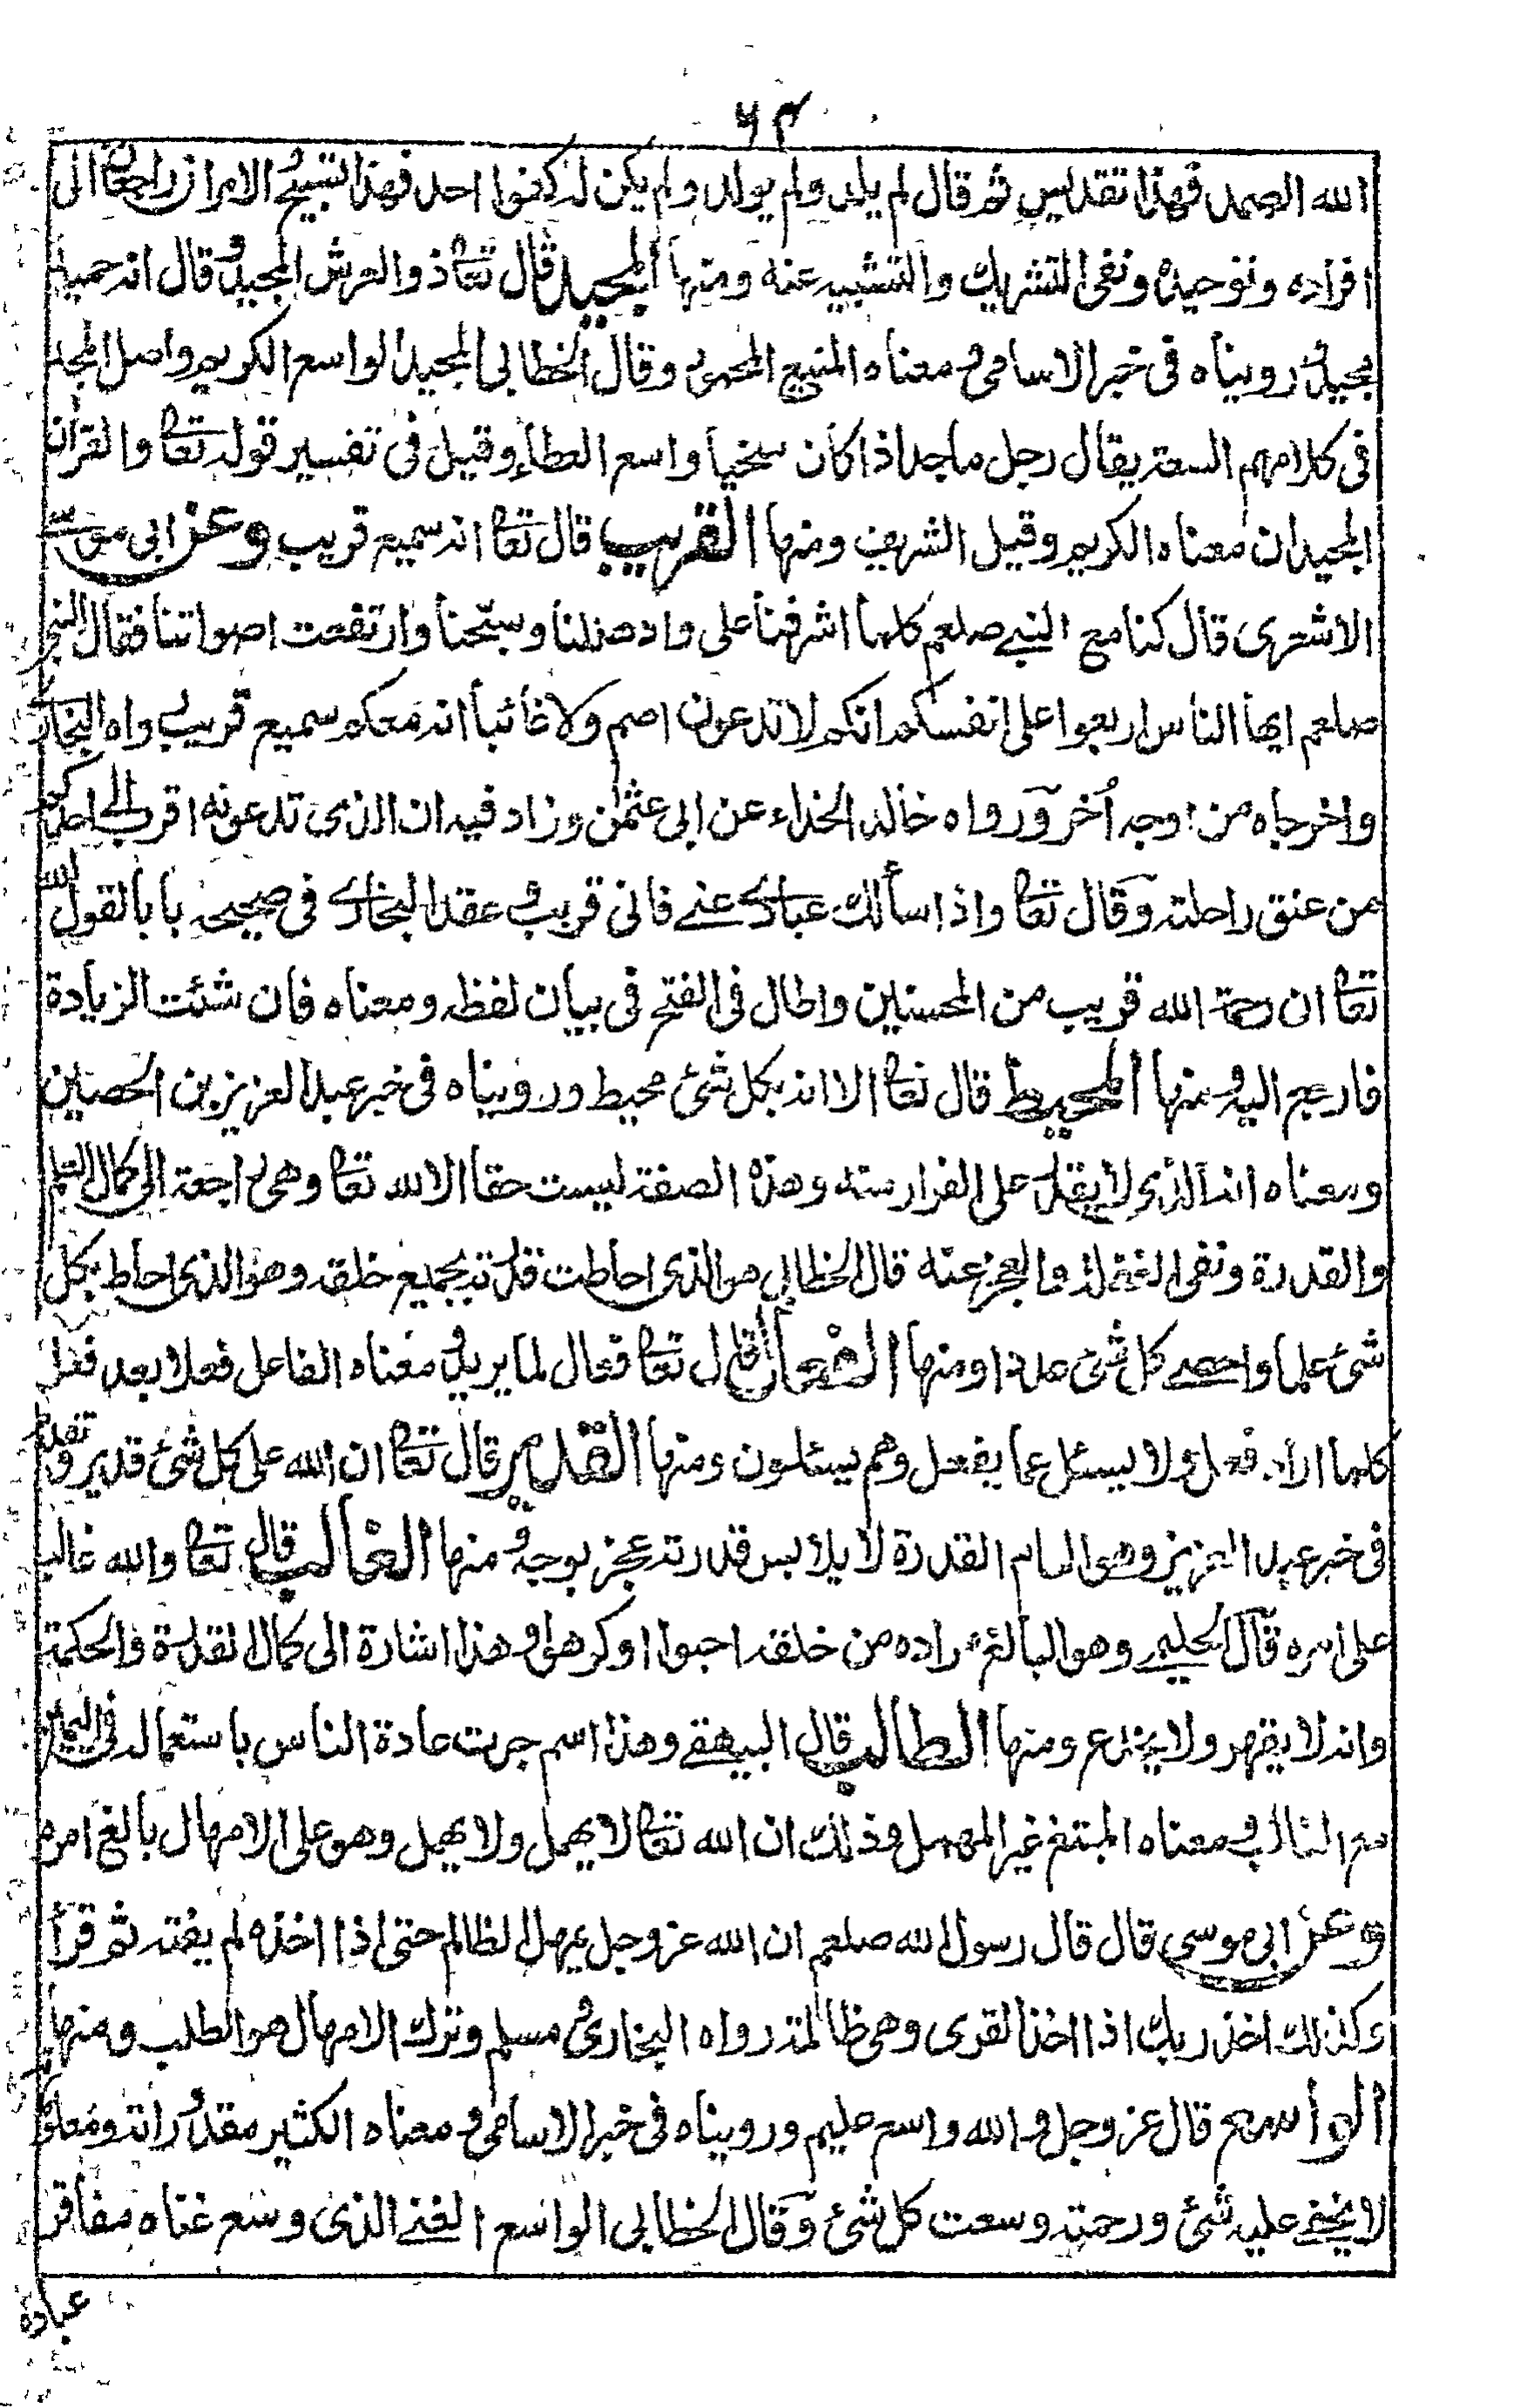 ٦٣
الله الصمد فهذا تقديس ثم قال لم يلد ولم يولد ولم يكن له كفوا احد فهذا التسبيح والامران راجعان الى
افراده وتوحيده ونفى التشريك والتشبيه عنه ومنها المجيد قال تعا ذو العرش المجيد وقال انه حميد
مجيد رويناه فى خبر الاسامى ومعناه المنيع المحمود وقال الخطابى المجيد الواسع الكريم واصل المجد
فى كلامهم السعة يقال رجل ماجد اذا كان سخيا واسع العطاء وقيل فى تفسير قوله تعا والقرأن
المجيد ان معناه الكريم وقيل الشريف ومنها القريب قال تعا انه سميع قريب وعن ابى موسى
الاشعرى قال كنا مع النبى صلعم كلما اشرفنا على واد هللنا وسبّحنا وارتفعت اصواتنا فقال النبى
صلعم ايها الناس اربعوا على انفسكم انكم لا تدعون اصم ولا غائبا انه معكم سميع قريب رواه البخارى
واخرجاه من اوجه أخر ورواه خالد الحذاء عن ابى عثمن وزاد فيه ان الذى تدعونه اقرب الى احدكم
من عنق راحلته وقال تعا واذا سألك عبادى عنى فانى قريب وعقد البخارى فى صحيحه بابا لقول الله
تعا ان رحمة الله قريب من المحسنين واطال فى الفتح فى بيان لفظه ومعناه فان شئت الزيادة
فارجع اليه ومنها المحيط قال تعا الا انه بكل شئ محيط ورويناه فى خبر عبد العزيز بن الحصين
ومعناه انه الذى لا يقدر على الفرار منه وهذه الصفة ليست حقا الا لله تعا وهى راجعة الى كمال العلم
والقدرة ونفى الغفلة والعجز عنه قال الخطابى هو الذى احاطت قدرته بجميع خلقه وهو الذى احاط بكل
شئ علما واحصى كل شئ عددا ومنها الفعال قال تعا فعال لما يريد ومعناه الفاعل فعلا بعد فعل
كلما اراد فعل ولا يسئل عما يفعل وهم يسئلون ومنها القدير قال تعا ان الله على كل شئ قدير وتقدم
فى خبر عبد العزيز وهو التام القدرة لا يلابس قدرته عجز بوجه ومنها الغالب قال تعا والله غالب
على امره قال الحليمى وهو البالغ مراده من خلقه احبوا او كرهوا وهذا اشارة الى كمال القدرة والحكمة
وانه لا يقهر ولا يخدع ومنها الطالب قال البيهقى وهذا اسم جرت عادة الناس باستعماله فى اليمين
مع الغالب ومعناه المتبع غير المهمل وذلك ان الله تعا لا يهمل ولا يهمل وهو على الامهال بالغ امره
وعن ابى موسى قال قال رسول الله صلعم ان الله عز وجل يمهل الظالم حتى اذا اخذه لم يفلته ثم قرأ
وكذلك اخذ ربك اذا اخذ القرى وهى ظالمة رواه البخارى ومسلم وترك الامهال هو الطلب ومنها
الواسع قال عز وجل والله واسع عليم ورويناه فى خبر الاسامى ومعناه الكثير مقدوراته ومعلوماته
لا يخفى عليه شئ ورحمته وسعت كل شئ وقال الخطابى الواسع الغنى الذى وسع غناه مفاقر
عباده